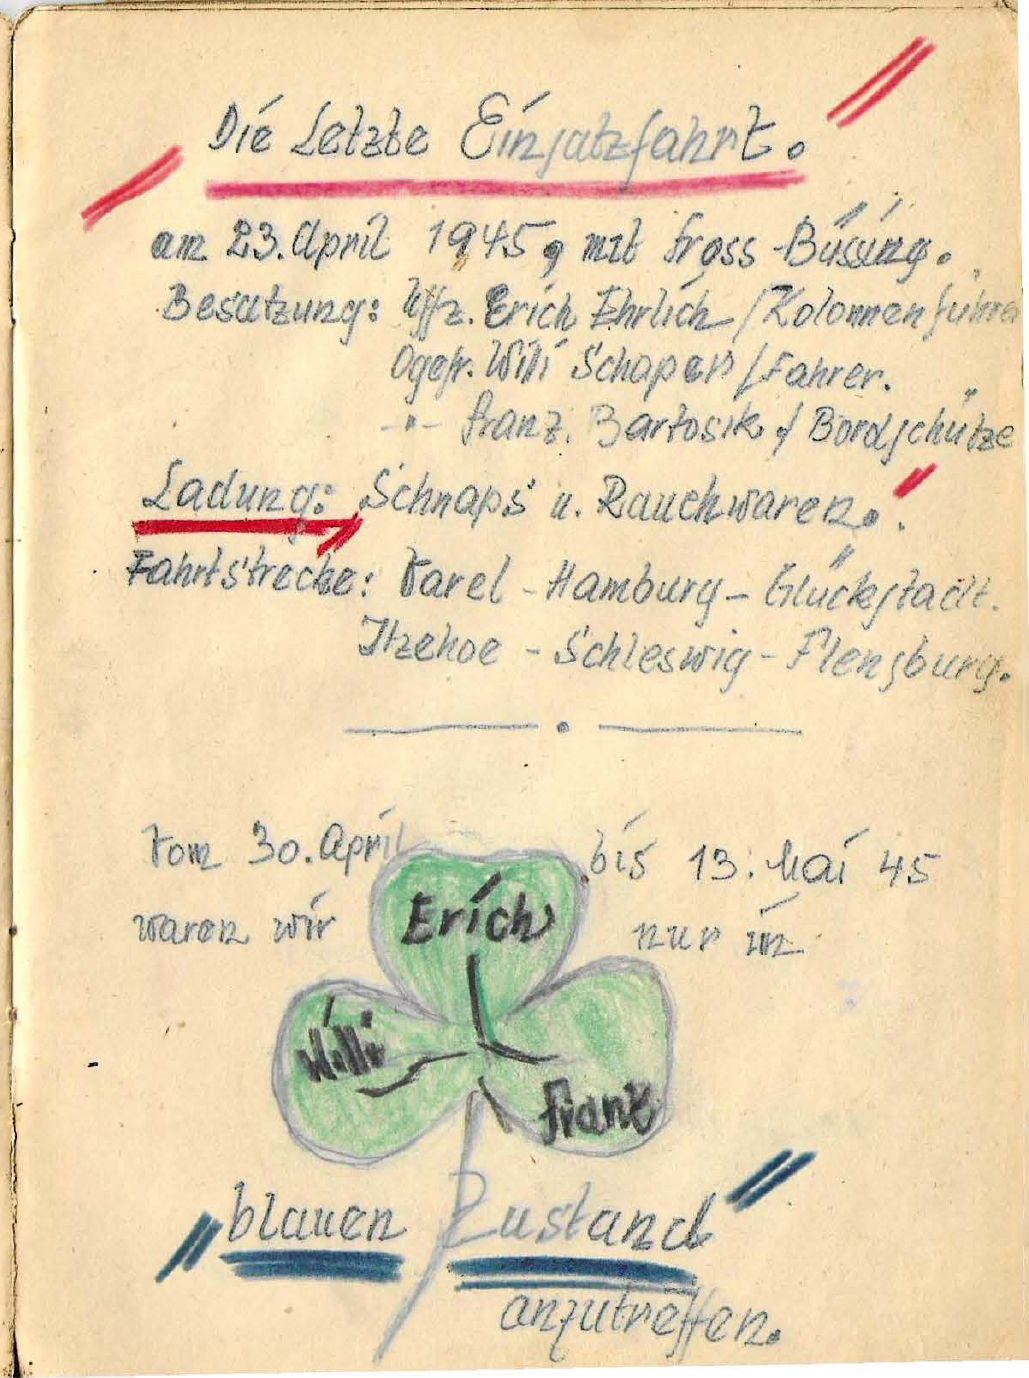 "Die Letzte Einsatzfahrt."
am 23. April 1945, mit Gross-Büssing.
Besatzung: Uffz. Erich Ehrlich / Kolonnenführer
Ogefr. Willi Schaper / Fahrer.
-"- Franz. Bartosik / Bordschütze
Ladung: Schnaps u. Rauchwaren.!
Fahrtstrecke: Varel - Hamburg - Glückstadt.
Itzehoe - Schleswig - Flensburg.
Vom 30. April bis 13. Mai 45
waren wir Erich nur in
Willi
Franz
"blauen Zustand"
anzutreffen.